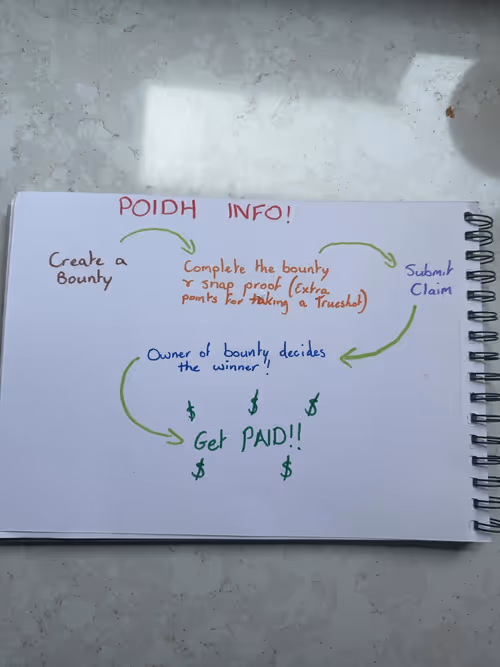 POIDH INFO!
Create a
Bounty
Complete the bounty
& snap proof (Extra
points for taking a Trueshot)
Submit
Claim
Owner of bounty decides
the winner!
$ $ $
Get PAID!!
$ $